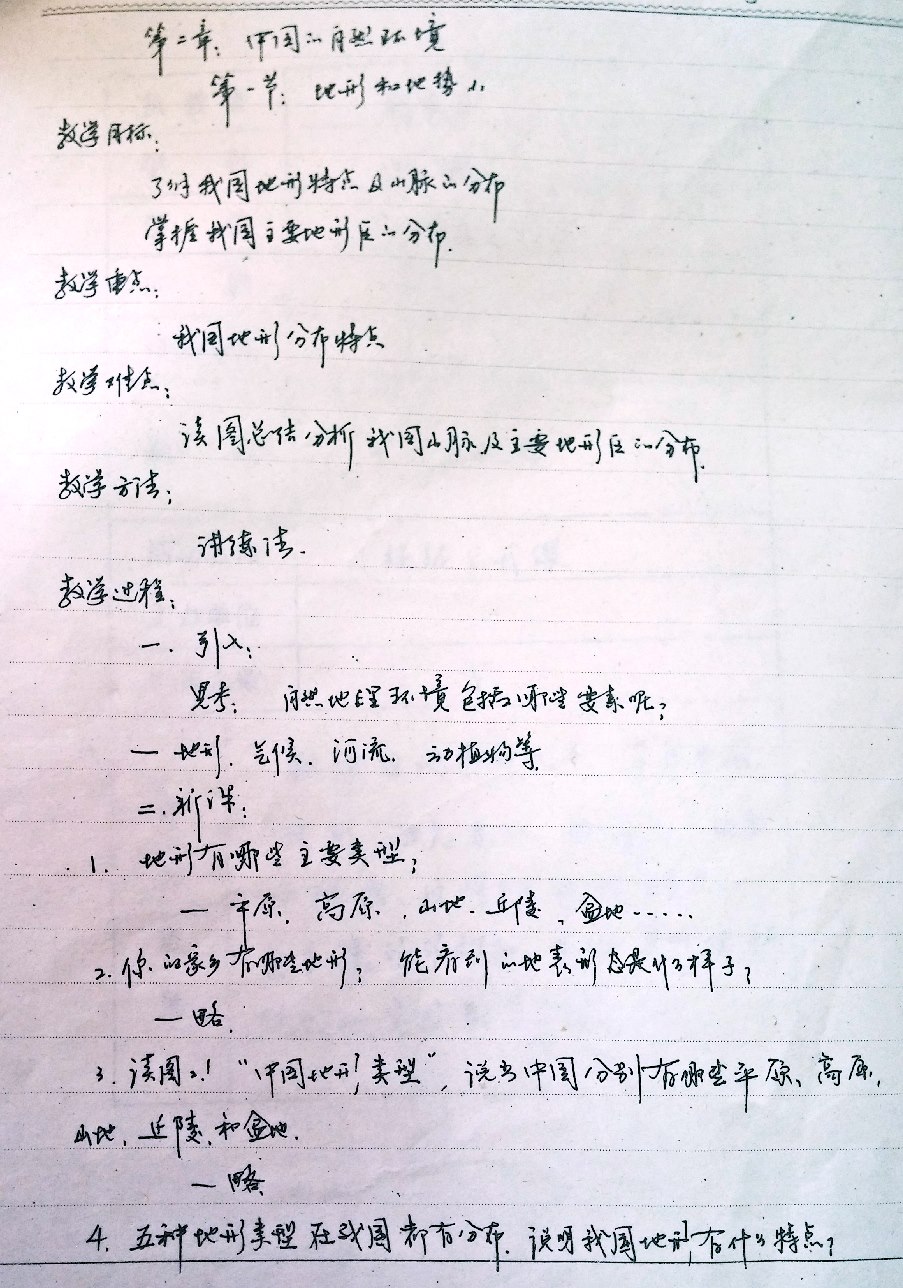 第二章：中国的自然环境
第一节：地形和地势
教学目标：
了解我国地形特点及山脉的分布
掌握我国主要地形区的分布.
教学重点：
我国地形分布特点
教学难点：
读图总结分析我国山脉及主要地形区的分布.
教学方法：
讲练法.
教学过程：
一. 引入：
思考： 自然地理环境包括哪些要素呢？
— 地形、气候、河流、动植物等
二. 新课：
1. 地形有哪些主要类型？
— 平原、高原、山地、丘陵、盆地……
2. 你的家乡有哪些地形？ 能看到的地表形态是什么样子？
— 略.
3. 读图2.1 “中国地形类型”，说出中国分别有哪些平原、高原、
山地、丘陵、和盆地.
— 略
4. 五种地形类型在我国都有分布. 说明我国地形有什么特点？